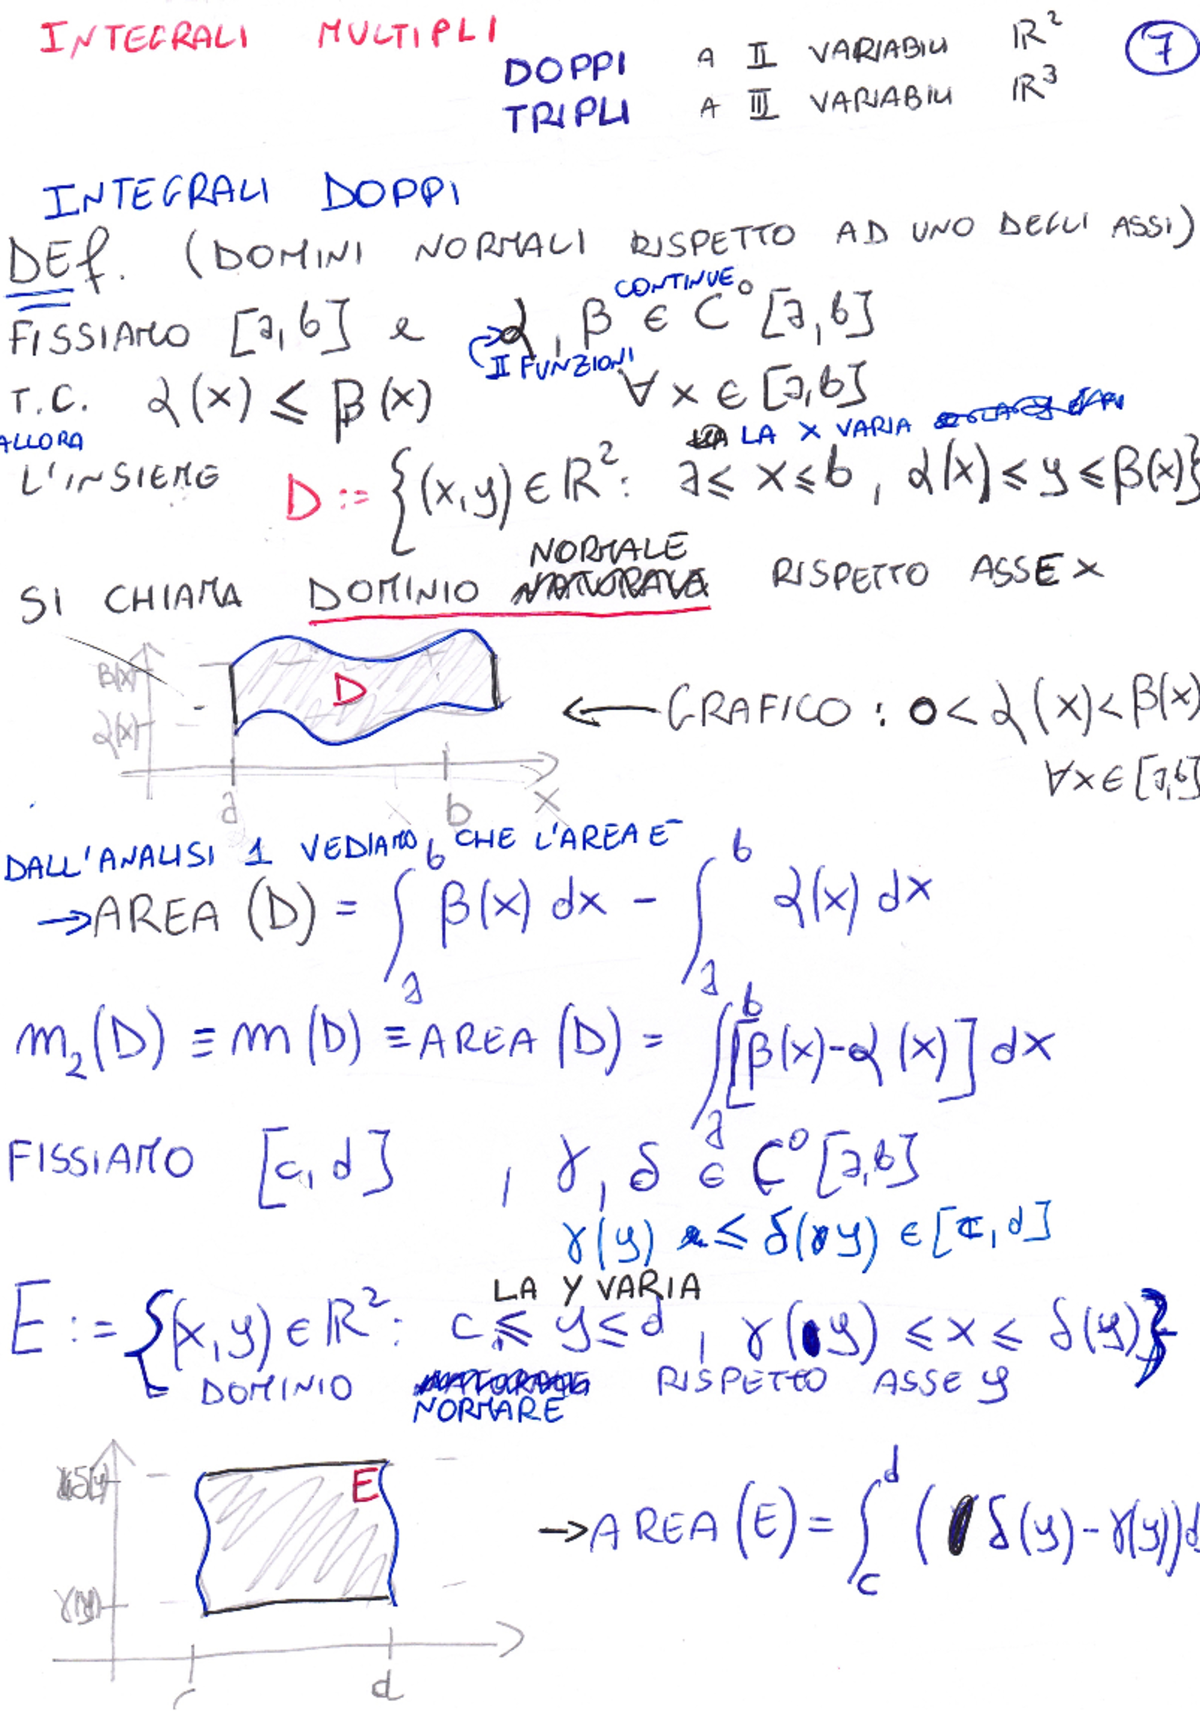 INTEGRALI MULTIPLI
DOPPI A II VARIABILI ℝ² 7
TRIPLI A III VARIABILI ℝ³
INTEGRALI DOPPI
DEf. (DOMINI NORMALI RISPETTO AD UNO DEGLI ASSI)
CONTINUE
FISSIAMO [a,b] e α, β ∈ C⁰ [a,b]
II FUNZIONI
T.C. α(x) ≤ β(x) ∀ x ∈ [a,b]
ALLORA LA X VARIA
L'INSIEME D := {(x,y) ∈ ℝ²: a ≤ x ≤ b, α(x) ≤ y ≤ β(x)}
NORMALE
SI CHIAMA DOMINIO RISPETTO ASSE X
β(x) D
α(x) ← GRAFICO : 0 < α(x) < β(x)
∀x ∈ [a,b]
a b x
DALL'ANALISI 1 VEDIAMO CHE L'AREA E'
→ AREA (D) = ∫_a^b β(x) dx - ∫_a^b α(x) dx
m₂(D) ≡ m(D) ≡ AREA (D) = ∫_a^b [β(x) - α(x)] dx
FISSIAMO [c,d] , γ, δ ∈ C⁰ [a,b]
γ(y) ≤ δ(y) ∈ [c,d]
LA Y VARIA
E := {(x,y) ∈ ℝ²: c ≤ y ≤ d, γ(y) ≤ x ≤ δ(y)}
DOMINIO RISPETTO ASSE y
NORMARE
δ(y) E
→ AREA (E) = ∫_c^d (δ(y) - γ(y)) d
γ(y)
c d